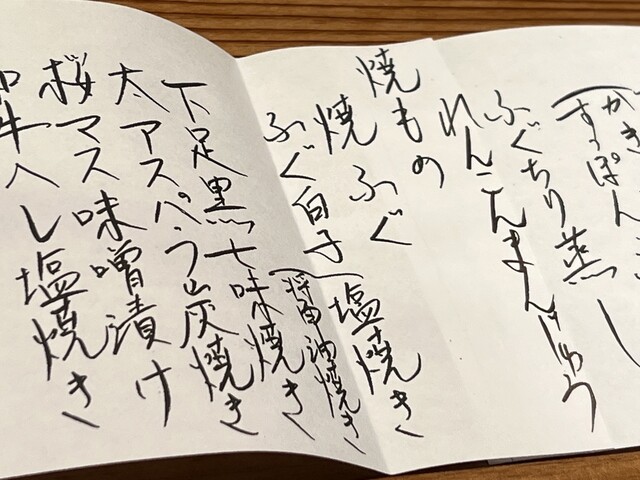 かき
すっぽん
ふぐちり蒸し
れんこんまんじゅう
焼もの
焼ふぐ
ふぐ白子(塩焼き
醤油焼き
下足黒七味焼き
太アスパラ炭焼き
桜マス味噌漬け
牛ヘレ塩焼き